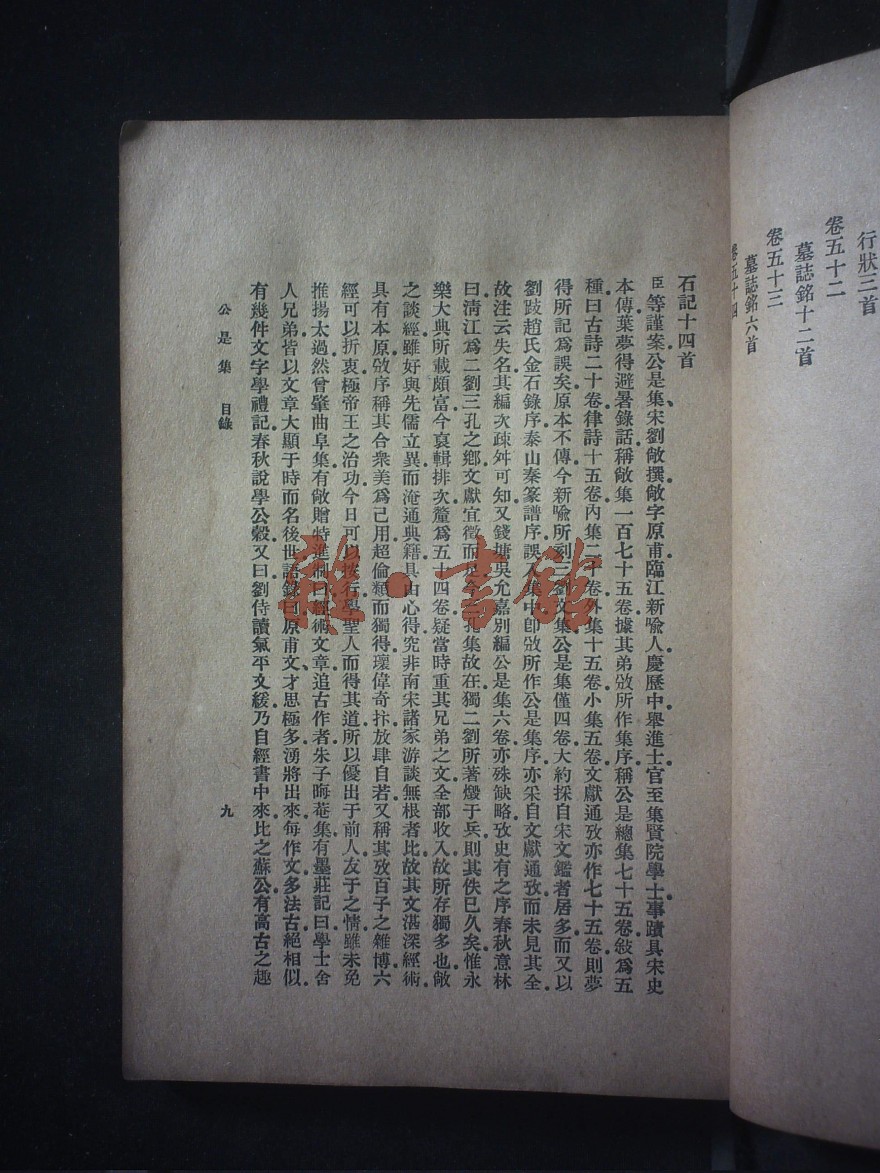 行狀三首
卷五十二
墓誌銘十二首
卷五十三
墓誌銘六首
卷五十四
石記十四首
臣等謹案公是集宋劉敞撰敞字原甫臨江新喩人慶歷中舉進士官至集賢院學士事蹟具宋史
本傳葉夢得避暑錄話稱敞集一百七十五卷據其弟攽所作集序稱公是總集七十五卷敍爲五
種曰古詩二十卷律詩十五卷內集二十卷外集十五卷小集五卷文獻通攷亦作七十五卷則夢
得所記爲誤矣原本不傳今新喩所刻三劉文集公是集僅四卷大約採自宋文鑑者居多而又以
劉跂趙氏金石錄序泰山秦篆譜序誤入集中卽攽所作公是集序亦采自文獻通攷而未見其全
故注云失名其編次疎舛可知又錢塘吳允嘉別編公是集六卷亦殊缺略攷史有之序春秋意林
曰淸江爲二劉三孔之鄉文獻宜徵而足今三孔集故在獨二劉所著燬于兵則其佚已久矣惟永
樂大典所載頗富今裒輯排次釐爲五十四卷疑當時重其兄弟之文全部收入故所存獨多也敞
之談經雖好與先儒立異而淹通典籍具由心得究非南宋諸家游談無根者比故其文湛深經術
具有本原攽序稱其合衆美爲己用超倫類而獨得瓌偉奇抃放肆自若又稱其攷百子之雜博六
經可以折衷極帝王之治功今日可以按行學聖人而得其道所以優出于前人友于之情雖未免
推揚太過然曾肇曲阜集有敞贈特進制曰經術文章追古作者朱子晦菴集有墨莊記曰學士舍
人兄弟皆以文章大顯于時而名後世語錄曰原甫文才思極多湧將出來每作文多法古絕相似
有幾件文字學禮記春秋說學公穀又曰劉侍讀氣平文緩乃自經書中來比之蘇公有高古之趣
公是集 目錄
九
雜·書館